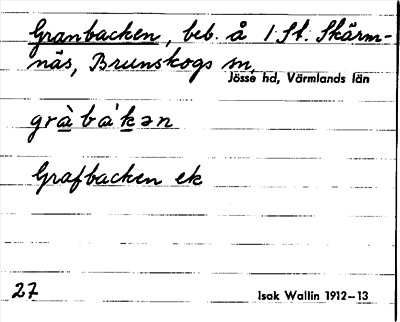 Granbacken, beb. å 1 St. Skärm-
näs, Brunskogs sn,
Jösse hd, Värmlands län
gràbàkən
Grafbacken ek
27
Isak Wallin 1912–13